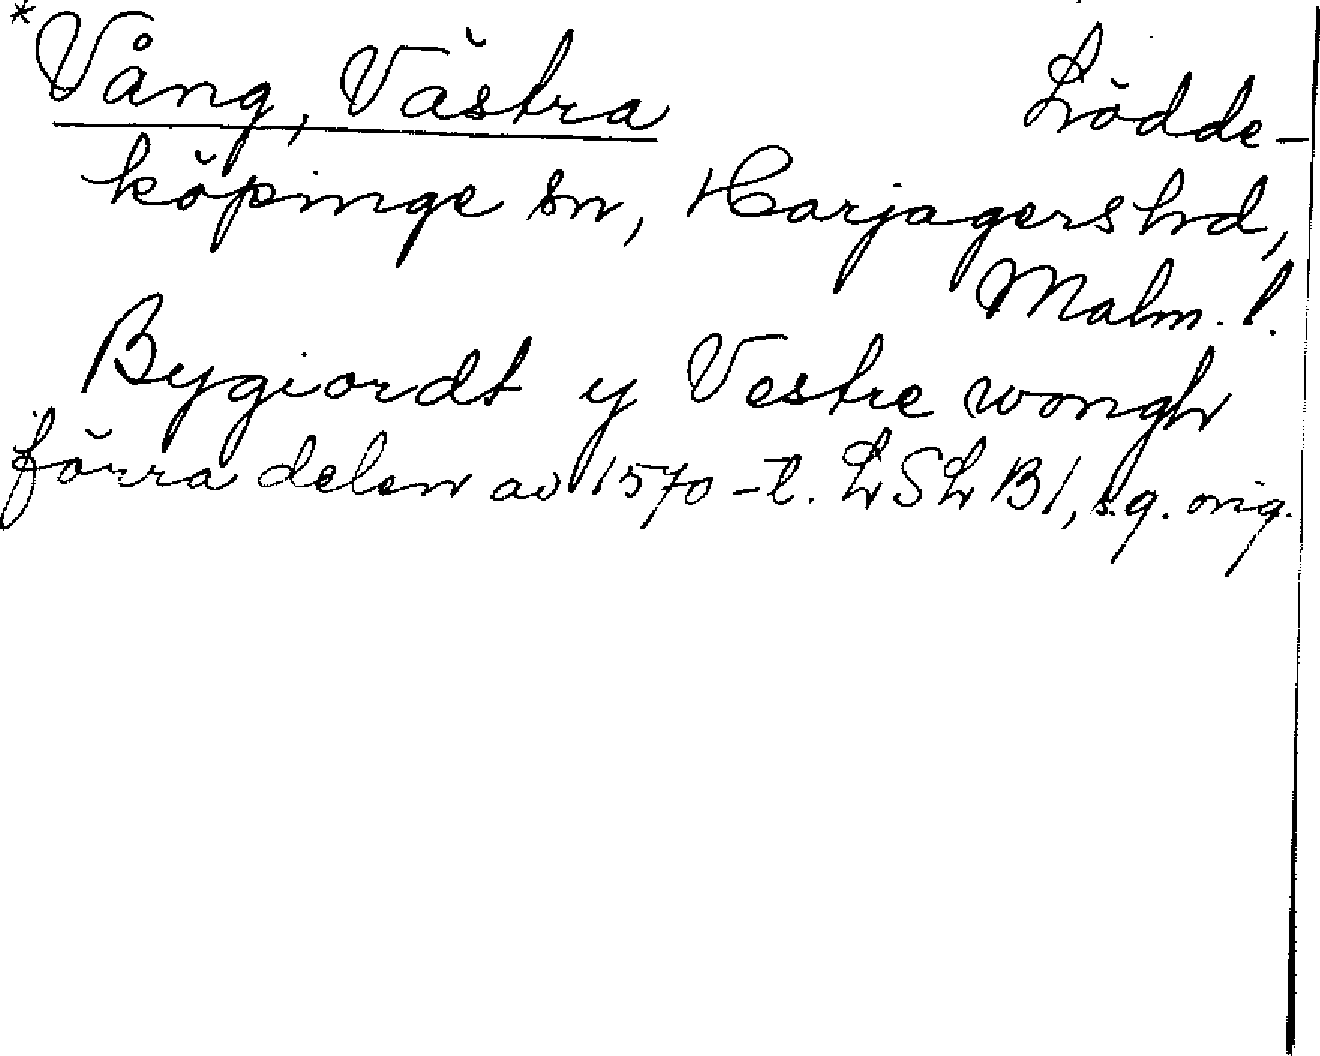 *Vång, Västra Lödde-
köpinge sn, Harjagers hd,
Malm. l.
Bygiordt y Vestre wongh
förra delen av 1570-t. LSLB1, s.9. orig.